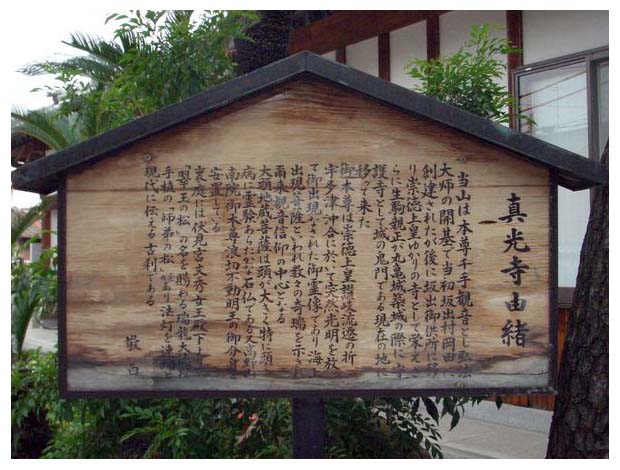 真光寺由緒
当山は本尊千手観音とし弘法
大師の開基で当初坂出村岡田に
創建されたが後に坂出御供所に移
り崇徳上皇ゆかりの寺として栄えさ
らに生駒親正が丸亀城築城の際に守
護寺として城の鬼門である現在の地に
移って来た
御本尊は崇徳上皇讃岐流遷の折
宇多津沖合に於いて突然光明を放
て御出現なされた御霊像であり海上
出現菩薩といわれ数々の奇瑞を示し
雨来観音信仰の中心となる
大頭地蔵菩薩は頭が大きく特に頭
病に霊験あらたかな石仏である又高野山
南院御本尊浪切不動明王の御分身を
安置している
裏庭には伏見宮文秀女王殿下より
「翠王の松」の名を賜わる瑞龍大
手植の「師弟の松」があり法灯を連綿
現代に伝える古刹である
敬白